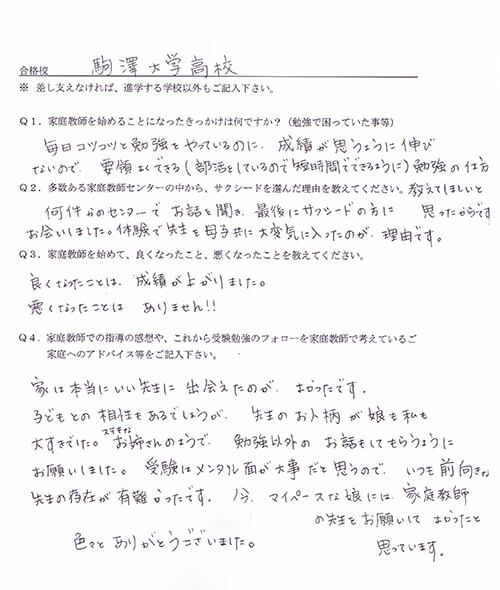 合格校 駒澤大学高校
※ 差し支えなければ、進学する学校以外もご記入下さい。
Q1. 家庭教師を始めることになったきっかけは何ですか？（勉強で困っていた事等）
毎日コツコツと勉強をやっているのに、成績が思うように伸び
ないので、要領よくできる（部活をしているので短時間でできるように）勉強の仕方
Q2. 多数ある家庭教師センターの中から、サクシードを選んだ理由を教えてください。教えてほしいと
何件かのセンターでお話を聞き、最後にサクシードの方に 思ったからです
お会いしました。体験で先生を母子共に大変気に入ったのが、理由です。
Q3. 家庭教師を始めて、良くなったこと、悪くなったことを教えてください。
良くなったことは、成績が上がりました。
悪くなったことは ありません!!
Q4. 家庭教師での指導の感想や、これから受験勉強のフォローを家庭教師で考えているご
家庭へのアドバイス等をご記入下さい。
家は本当にいい先生に出会えたのが、よかったです。
子どもとの相性もあるでしょうが、先生のお人柄が娘も私も
大すきでした。ステキなお姉さんのようで、勉強以外のお話もしてもらうように
お願いしました。受験はメンタル面が大事だと思うので、いつも前向きな
先生の存在が有難かったです。今、マイペースな娘には、家庭教師
の先生をお願いして よかったと
色々とありがとうございました。 思っています。